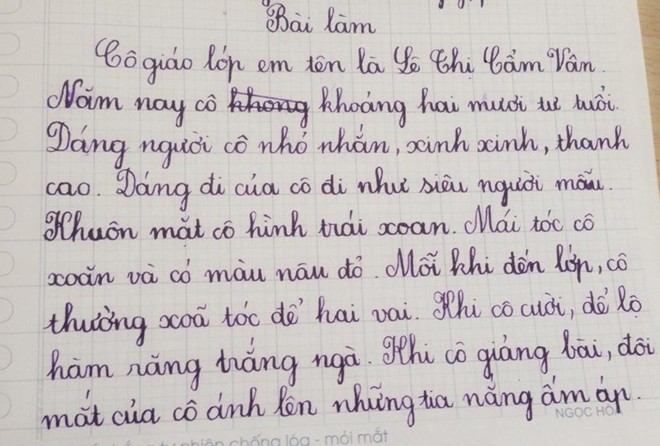 Bài làm
Cô giáo lớp em tên là Lê Thị Cẩm Vân.
Năm nay cô không khoảng hai mươi tư tuổi.
Dáng người cô nhỏ nhắn, xinh xinh, thanh
cao. Dáng đi của cô đi như siêu người mẫu.
Khuôn mặt cô hình trái xoan. Mái tóc cô
xoăn và có màu nâu đỏ. Mỗi khi đến lớp, cô
thường xoã tóc để hai vai. Khi cô cười, để lộ
hàm răng trắng ngà. Khi cô giảng bài, đôi
mắt của cô ánh lên những tia nắng ấm áp.
NGỌC HÒ
chống lóa - mỏi mắt